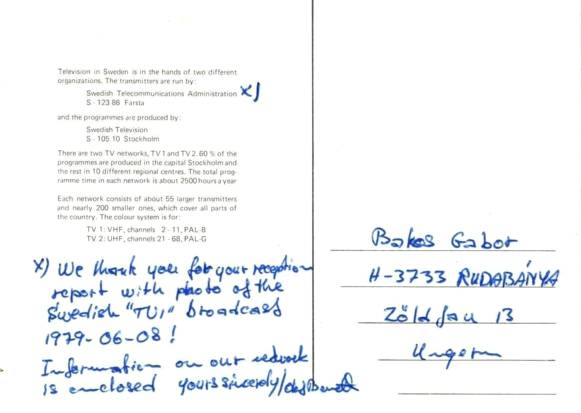 Television in Sweden is in the hands of two different
organizations. The transmitters are run by:
Swedish Telecommunications Administration x)
S - 123 86 Farsta
and the programmes are produced by:
Swedish Television
S - 105 10 Stockholm
There are two TV networks, TV 1 and TV 2. 60 % of the
programmes are produced in the capital Stockholm and
the rest in 10 different regional centres. The total prog-
ramme time in each network is about 2500 hours a year
Each network consists of about 55 larger transmitters
and nearly 200 smaller ones, which cover all parts of
the country. The colour system is for:
TV 1: VHF, channels 2 - 11, PAL-B
TV 2: UHF, channels 21 - 68, PAL-G
x) We thank you for your reception
report with photo of the
Swedish "TV1" broadcast
1979-06-08!
Information on our network
is enclosed yours sincerely/
Bakos Gabor
H-3733 RUDABÁNYA
Zöldfau 13
Ungern